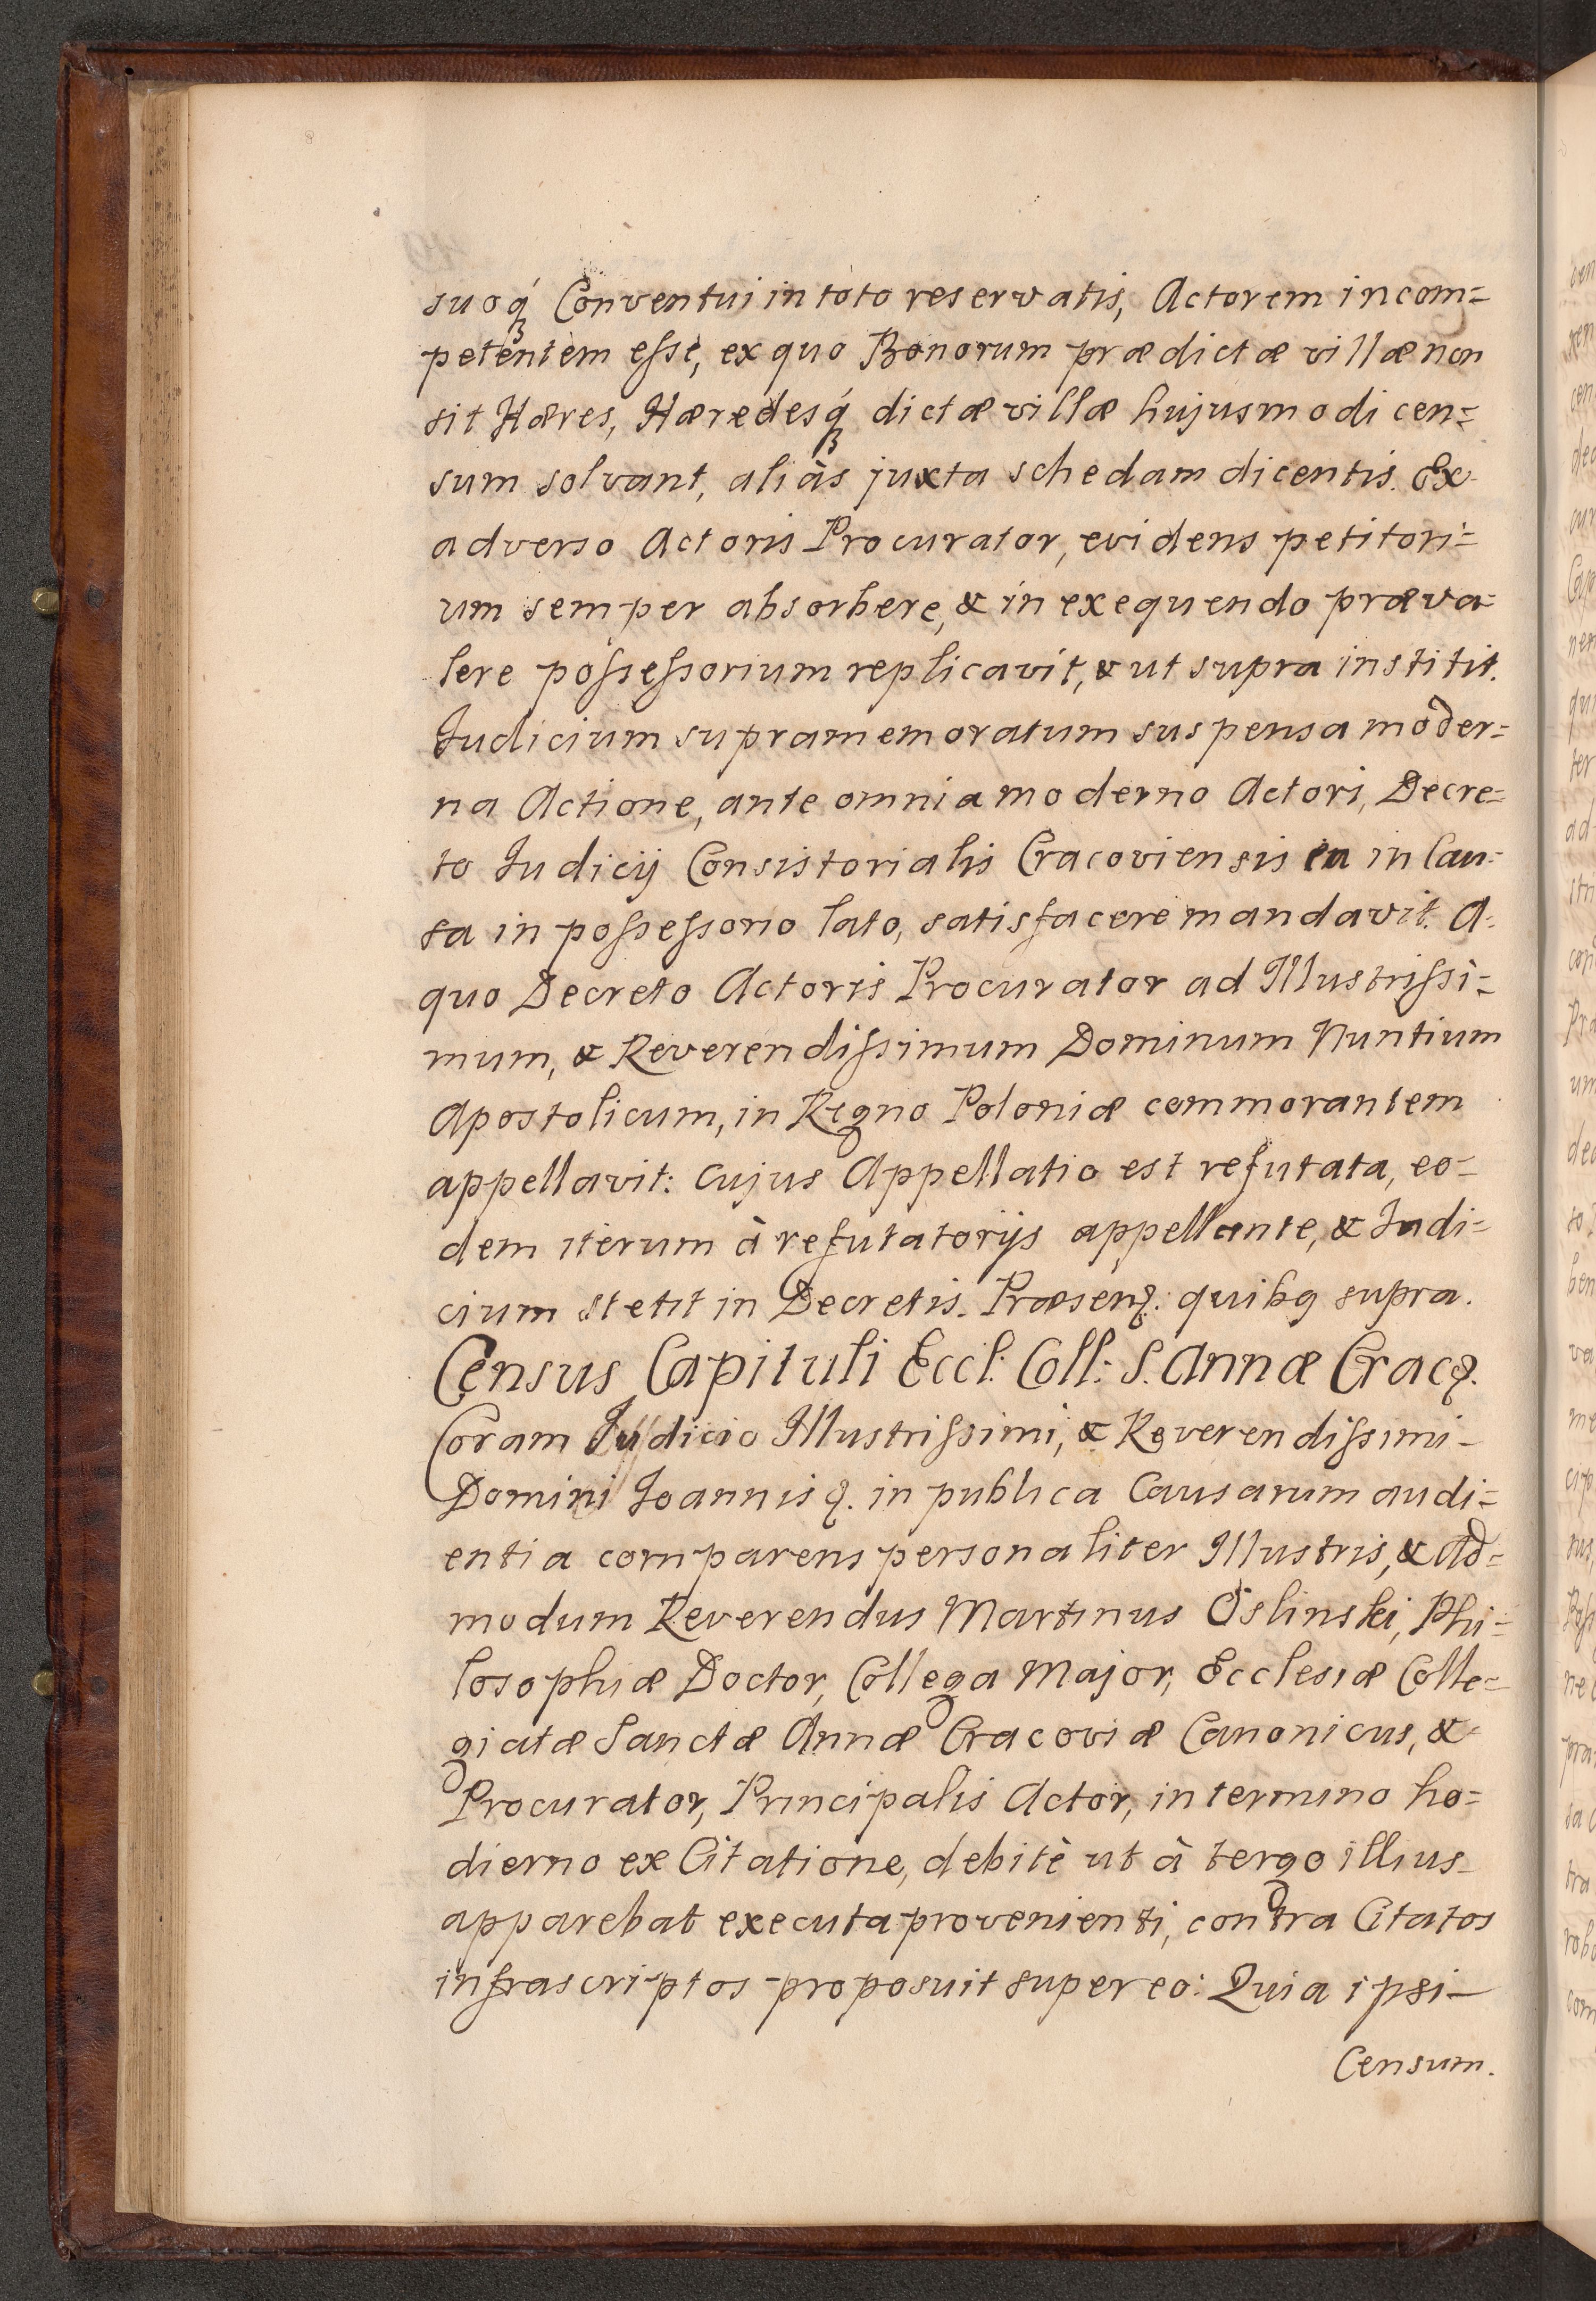 suoq́ꝫ Conventui in toto reservatis, Actorem incom=
petentem esse, ex quo Bonorum prædictæ villæ non
sit Hæres, Hæredesq́ꝫ dictæ villæ hujusmodi cen=
sum solvant, aliàs juxta schedam dicentis. Ex
adverso Actoris Procurator, evidens petitori=
um semper absorbere, & in exequendo præva=
lere possessorium replicavit, & ut supra institit.
Judicium supramemoratum suspensa moder=
na Actione, ante omnia moderno Actori, Decre=
to Judicij Consistorialis Cracoviensis in Cau=
sa in possessorio lato, satisfacere mandavit. A
quo Decreto Actoris Procurator ad Illustrissi=
mum, & Reverendissimum Dominum Nuntium
Apostolicum, in Regno Poloniæ commorantem
appellavit: cujus Appellatio est refutata, eo=
dem iterum à refutatorijs appellante, & Judi=
cium stetit in Decretis. Præsenꝫ: quibꝗ supra.
Census Capituli Eccl: Coll: S. Annæ Cracꝫ.
Coram Judicio Illustrissimi, & Reverendissimi
Domini Joannis ꝫ. in publica Causarum audi=
entia comparens personaliter Illustris, & Ad=
modum Reverendus Martinus Oslinski, Phi=
losophiæ Doctor, Collega Major, Ecclesiæ Colle=
giatæ Sanctæ Annæ Cracoviæ Canonicus, &
Procurator, Principalis Actor, in termino ho=
dierno ex Citatione, debitè ut à tergo illius
apparebat executa provenienti, contra Citatos
infrascriptos proposuit super eo: Quia ipsi
Censum.